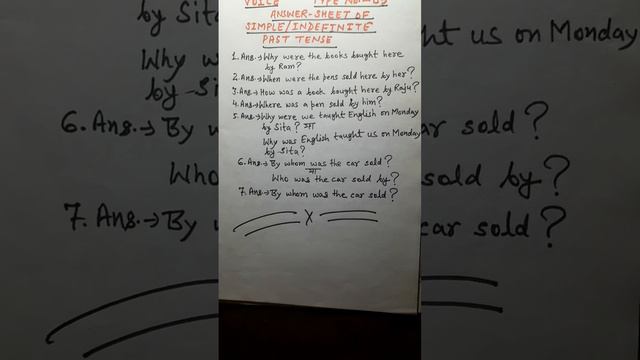 VOICE TYPE NO-03
ANSWER-SHEET OF
SIMPLE/INDEFINITE
PAST TENSE
1. Ans.→Why were the books bought here
by Ram?
2. Ans.→When were the pens sold here by her?
3. Ans.→How was a book bought here by Raju?
4. Ans.→Where was a pen sold by him?
5. Ans.→Why were we taught English on Monday
by Sita? या
Why was English taught us on Monday
by Sita?
6. Ans.→By whom was the car sold?
या
Who was the car sold by?
7. Ans.→By whom was the car sold?
X